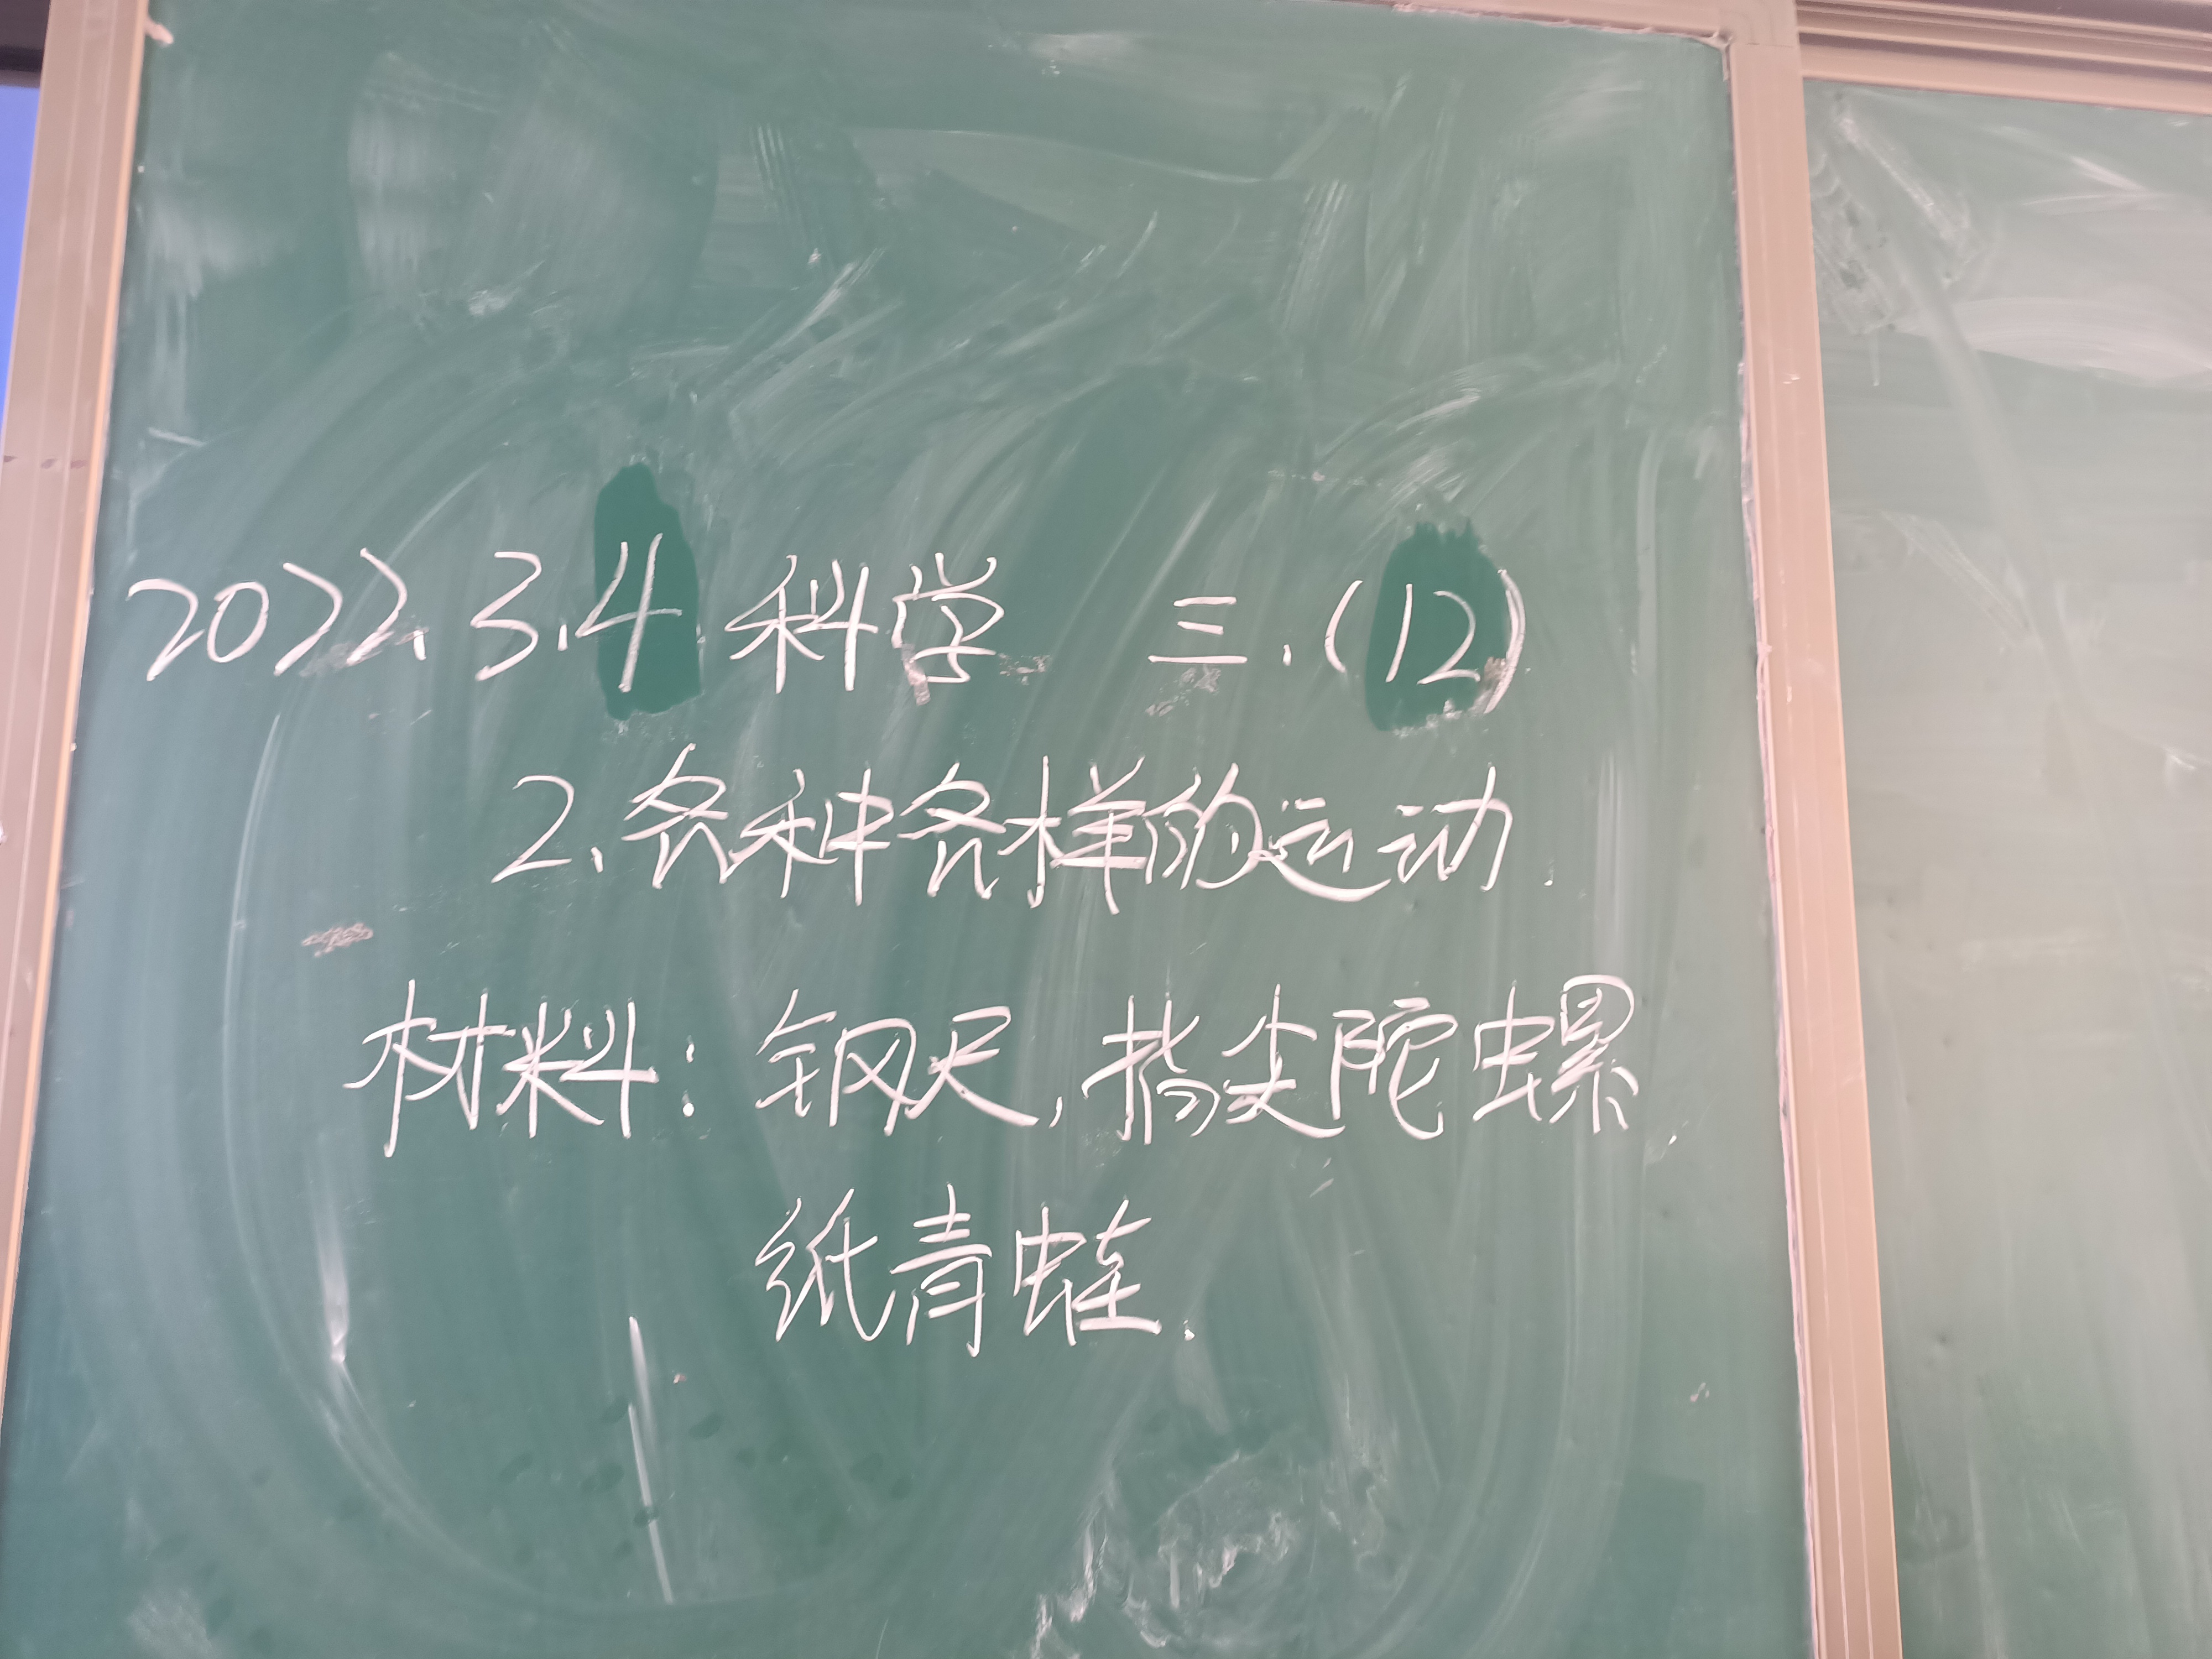 2022.3.4 科学 三.(12)
2.各种各样的运动.
材料:钢尺,指尖陀螺,
纸青蛙.